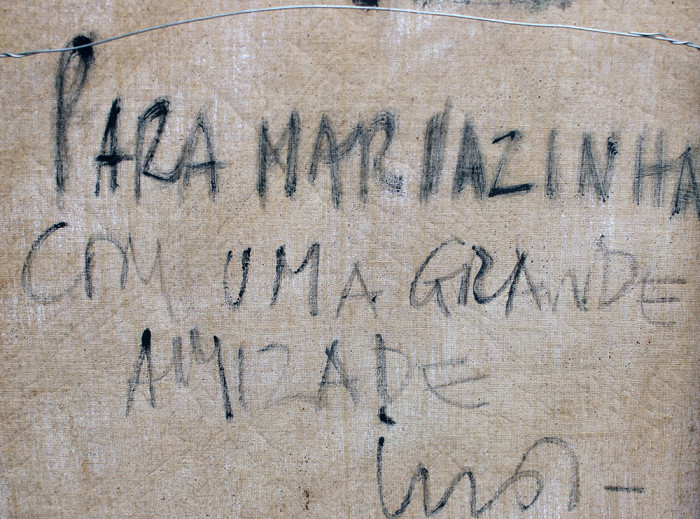 PARA MARIAZINHA
COM UMA GRANDE
AMIZADE